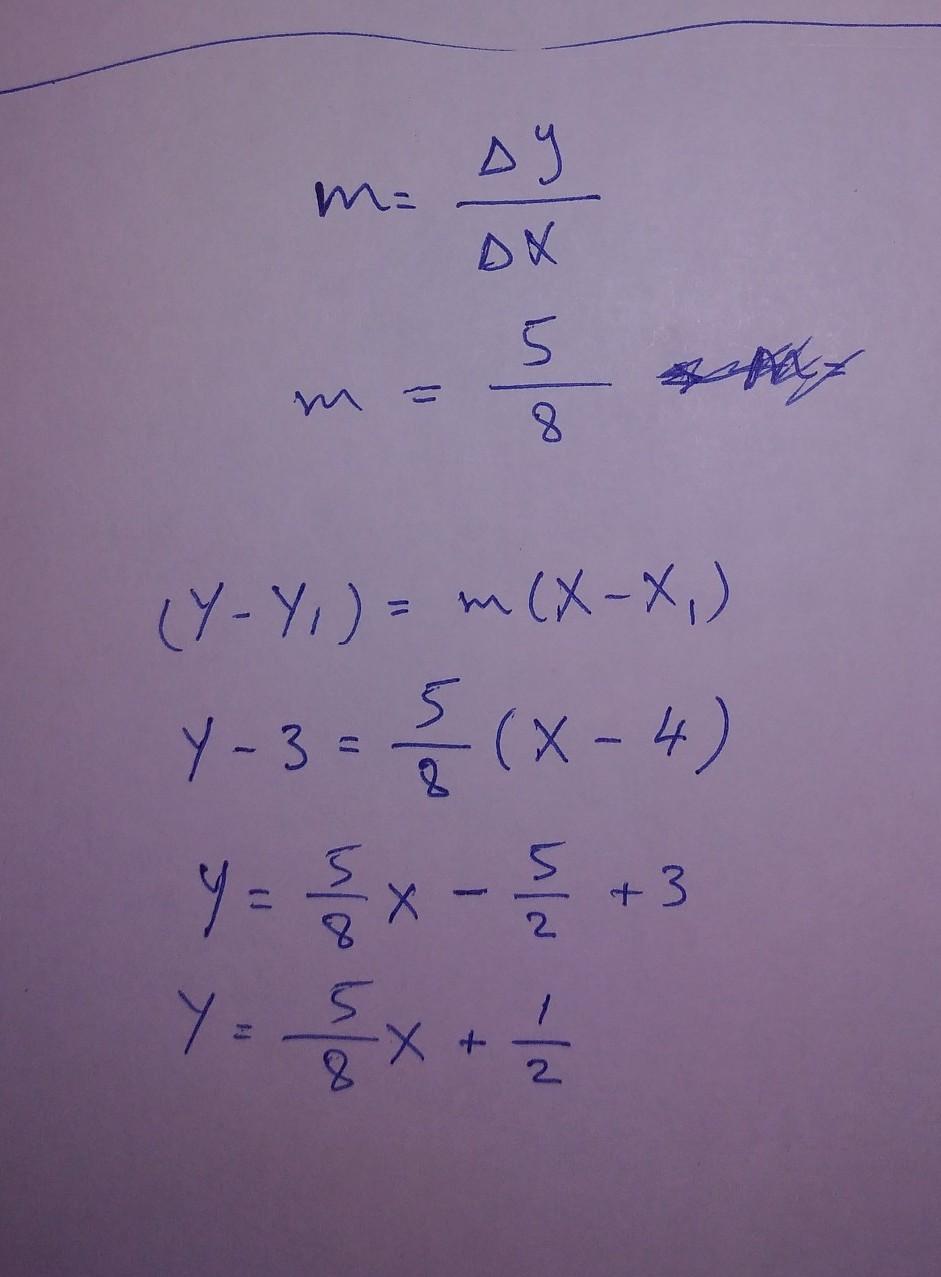 m = Δy / Δx
m = 5 / 8
(Y - Y₁) = m(X - X₁)
Y - 3 = 5/8 (X - 4)
y = 5/8 x - 5/2 + 3
Y = 5/8 X + 1/2